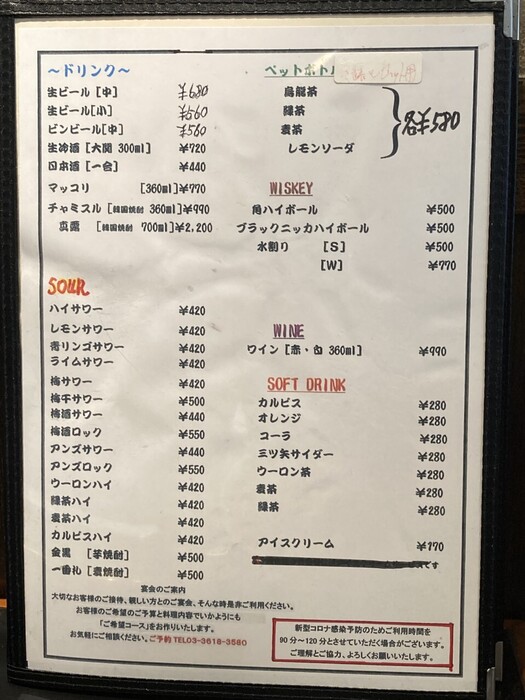 ～ドリンク～
生ビール [中] ¥680
生ビール[小] ¥560
ビンビール[中] ¥560
生冷酒 [大関 300ml] ¥720
日本酒 [一合] ¥440
マッコリ [360ml]¥770
チャミスル [韓国焼酎 360ml]¥990
真露 [韓国焼酎 700ml]¥2,200
SOUR
ハイサワー ¥420
レモンサワー ¥420
青リンゴサワー ¥420
ライムサワー ¥420
梅サワー ¥420
梅干サワー ¥500
梅酒サワー ¥440
梅酒ロック ¥550
アンズサワー ¥440
アンズロック ¥550
ウーロンハイ ¥420
緑茶ハイ ¥420
麦茶ハイ ¥420
カルピスハイ ¥420
金黒 [芋焼酎] ¥500
一番札 [麦焼酎] ¥500
ペットボトル
烏龍茶
緑茶
麦茶
レモンソーダ
各¥580
WISKEY
角ハイボール ¥500
ブラックニッカハイボール ¥500
水割り [S] ¥500
[W] ¥770
WINE
ワイン [赤・白 360ml] ¥990
SOFT DRINK
カルピス ¥280
オレンジ ¥280
コーラ ¥280
三ツ矢サイダー ¥280
ウーロン茶 ¥280
麦茶 ¥280
緑茶 ¥280
アイスクリーム ¥170
です
宴会のご案内
大切なお客様のご接待、親しい方とのご宴会、そんな時是非ご利用ください。
お客様のご希望のご予算と料理内容でいかようにも
「ご希望コース」をお作りいたします。
お気軽にご相談ください。ご予約 TEL03-3618-3580
新型コロナ感染予防のためご利用時間を
90分～120分とさせていただく場合がございます。
ご理解とご協力、よろしくお願いいたします。